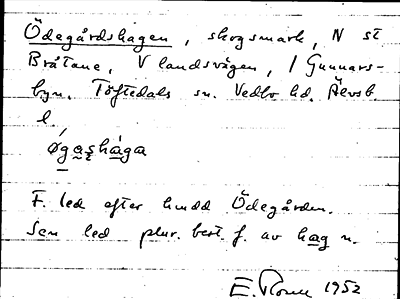 Ödegårdshagen, skogsmark, N st.
Bråtane, V landsvägen, / Gunnars-
byn. Töftedals sn. Vedbo hd. Älvsb.
l.
øgas̨hága
F. led efter hmdd Ödegården.
Sen led plur. best. f. av hag n.
E. 1952